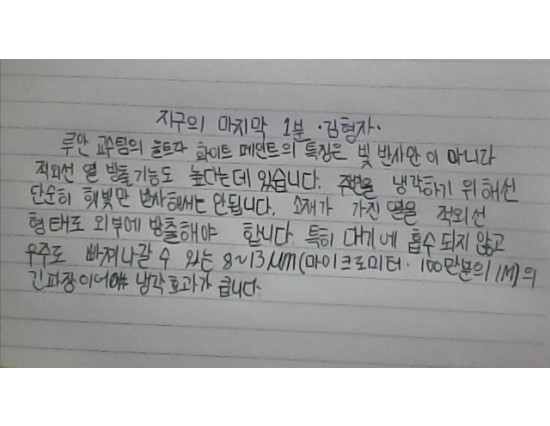 지구의 마지막 1분 ·김형자·
루안 교수팀의 울트라 화이트 페인트의 특징은 빛 반사만이 아니라
적외선 열 방출 기능도 높다는데 있습니다. 주변을 냉각하기 위해선
단순히 햇빛만 반사해서는 안됩니다. 소재가 가진 열을 적외선
형태로 외부에 방출해야 합니다. 특히 대기에 흡수 되지 않고
우주로 빠져나갈 수 있는 8~13μm(마이크로미터·100만분의 1M)의
긴파장이어야 냉각효과가 큽니다.